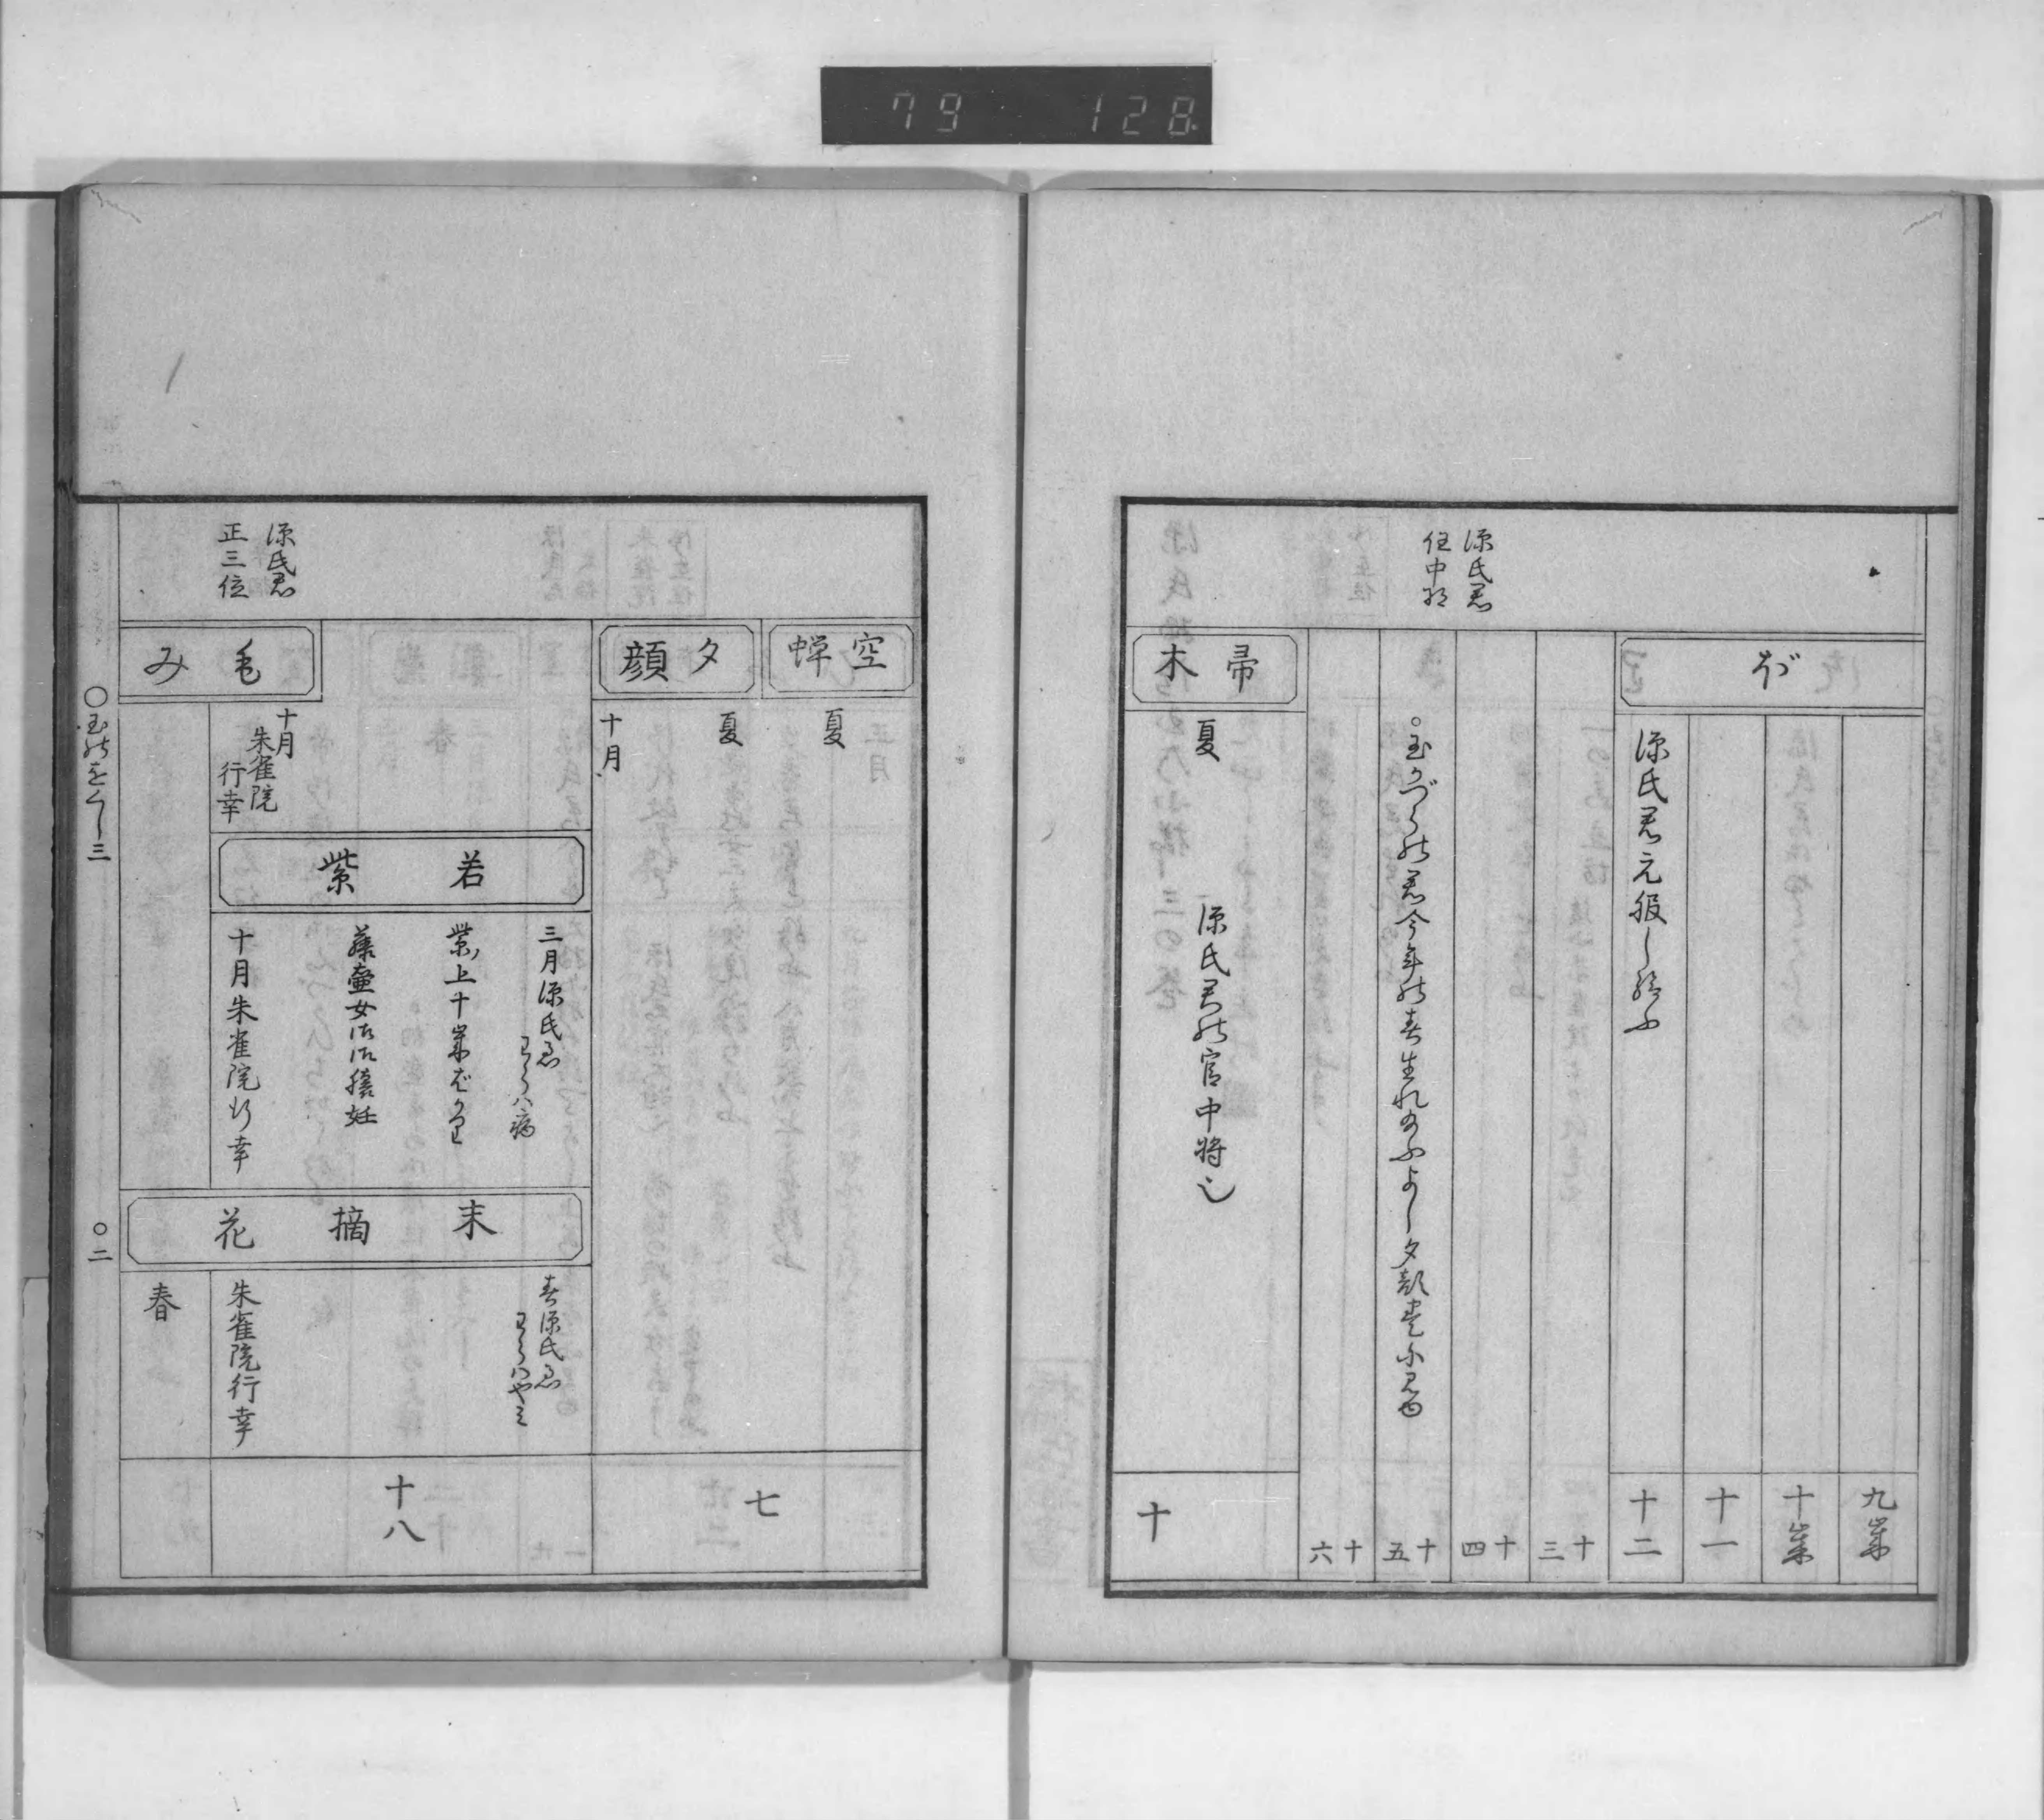 79 128
源氏君
任中将
ぼ
九歳
十歳
十一
源氏君元服し給ふ
十二
十三
十四
○玉かづらの君今年の春生れ給ふよし夕顔巻に見ゆ
十五
十六
帚木
夏
源氏君の官中将也
十
空蝉
夏
夕顔
夏
十月
七
源氏君
正三位
もみ
十月
朱雀院
行幸
若紫
三月源氏君
わらハ病
紫ノ上十歳ばかり
藤壷女御御懐妊
十月朱雀院行幸
末摘花
春源氏君
わらハやミ
朱雀院行幸
春
十八
○玉のをくし三
○二